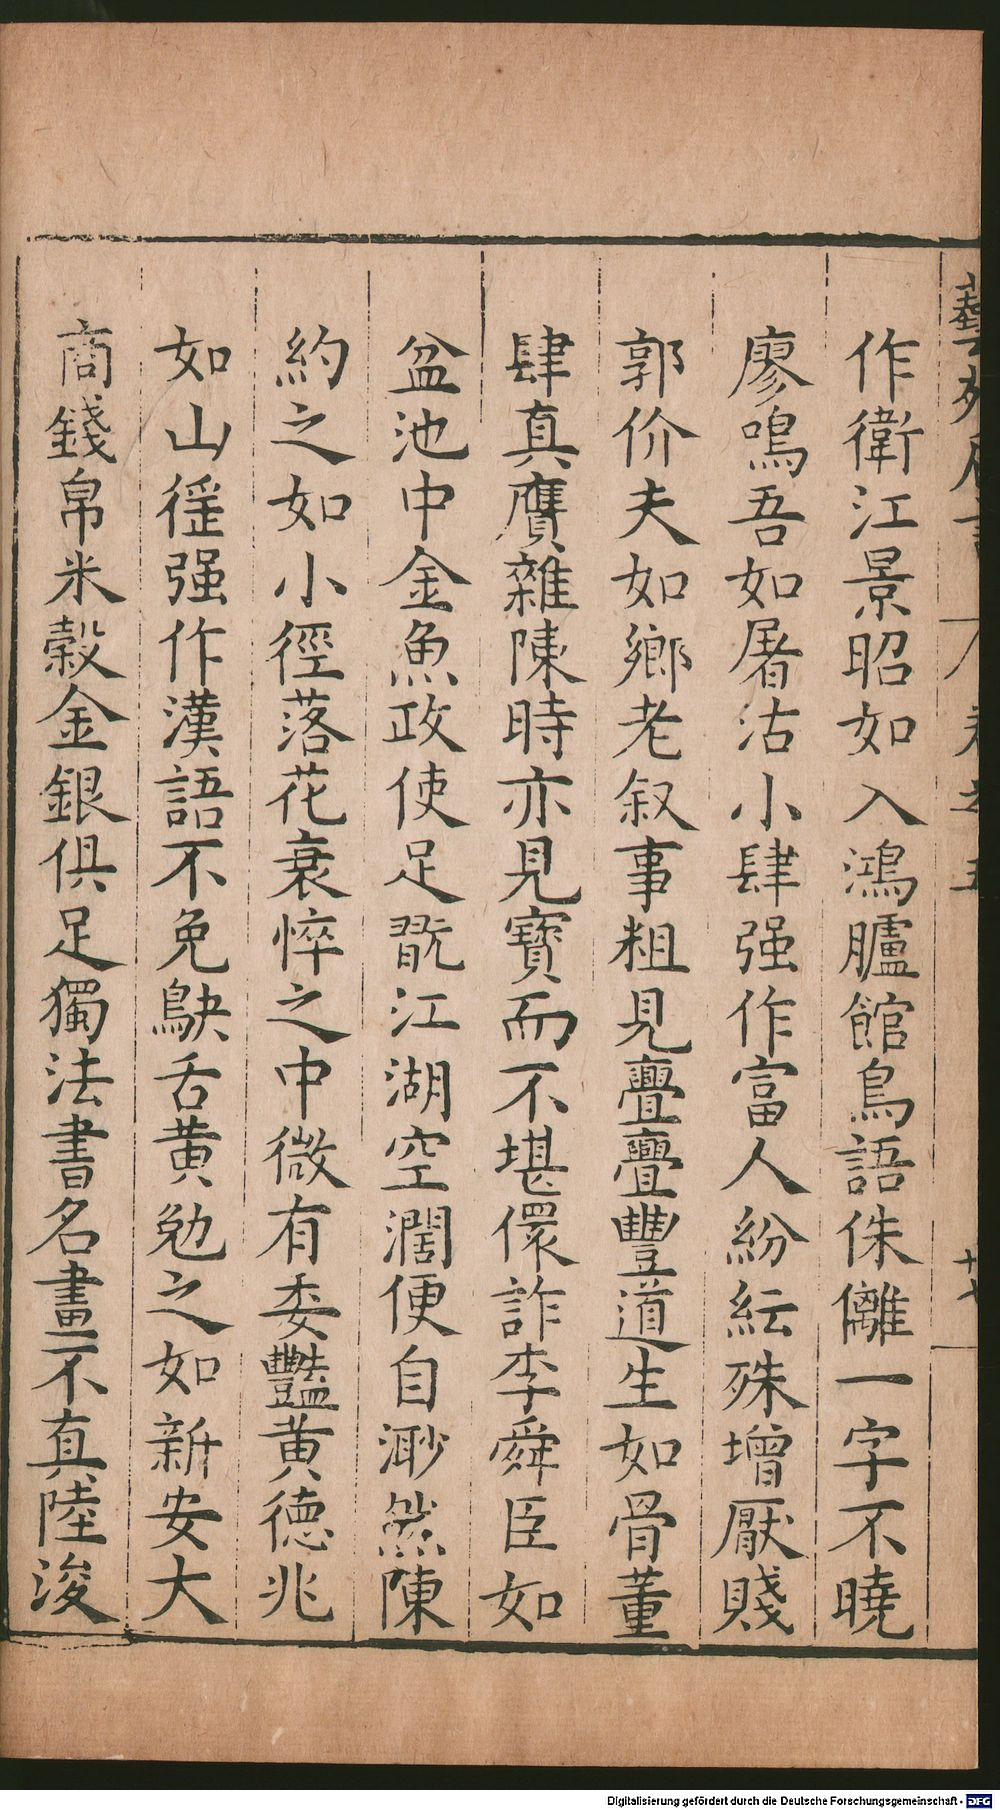 作衛江景昭如入鴻臚館鳥語侏離一字不曉
廖鳴吾如屠沽小肆强作富人紛紜殊增厭賤
郭价夫如鄉老叙事粗見亹亹豐道生如骨董
肆真贗雜陳時亦見寶而不堪儇詐李舜臣如
盆池中金魚政使足翫江湖空濶便自渺然陳
約之如小徑落花衰悴之中微有委豔黄德兆
如山徭强作漢語不免鴃舌黄勉之如新安大
商錢帛米穀金銀俱足獨法書名畫不真陸浚
十七
Digitalisierung gefördert durch die Deutsche Forschungsgemeinschaft - DFG